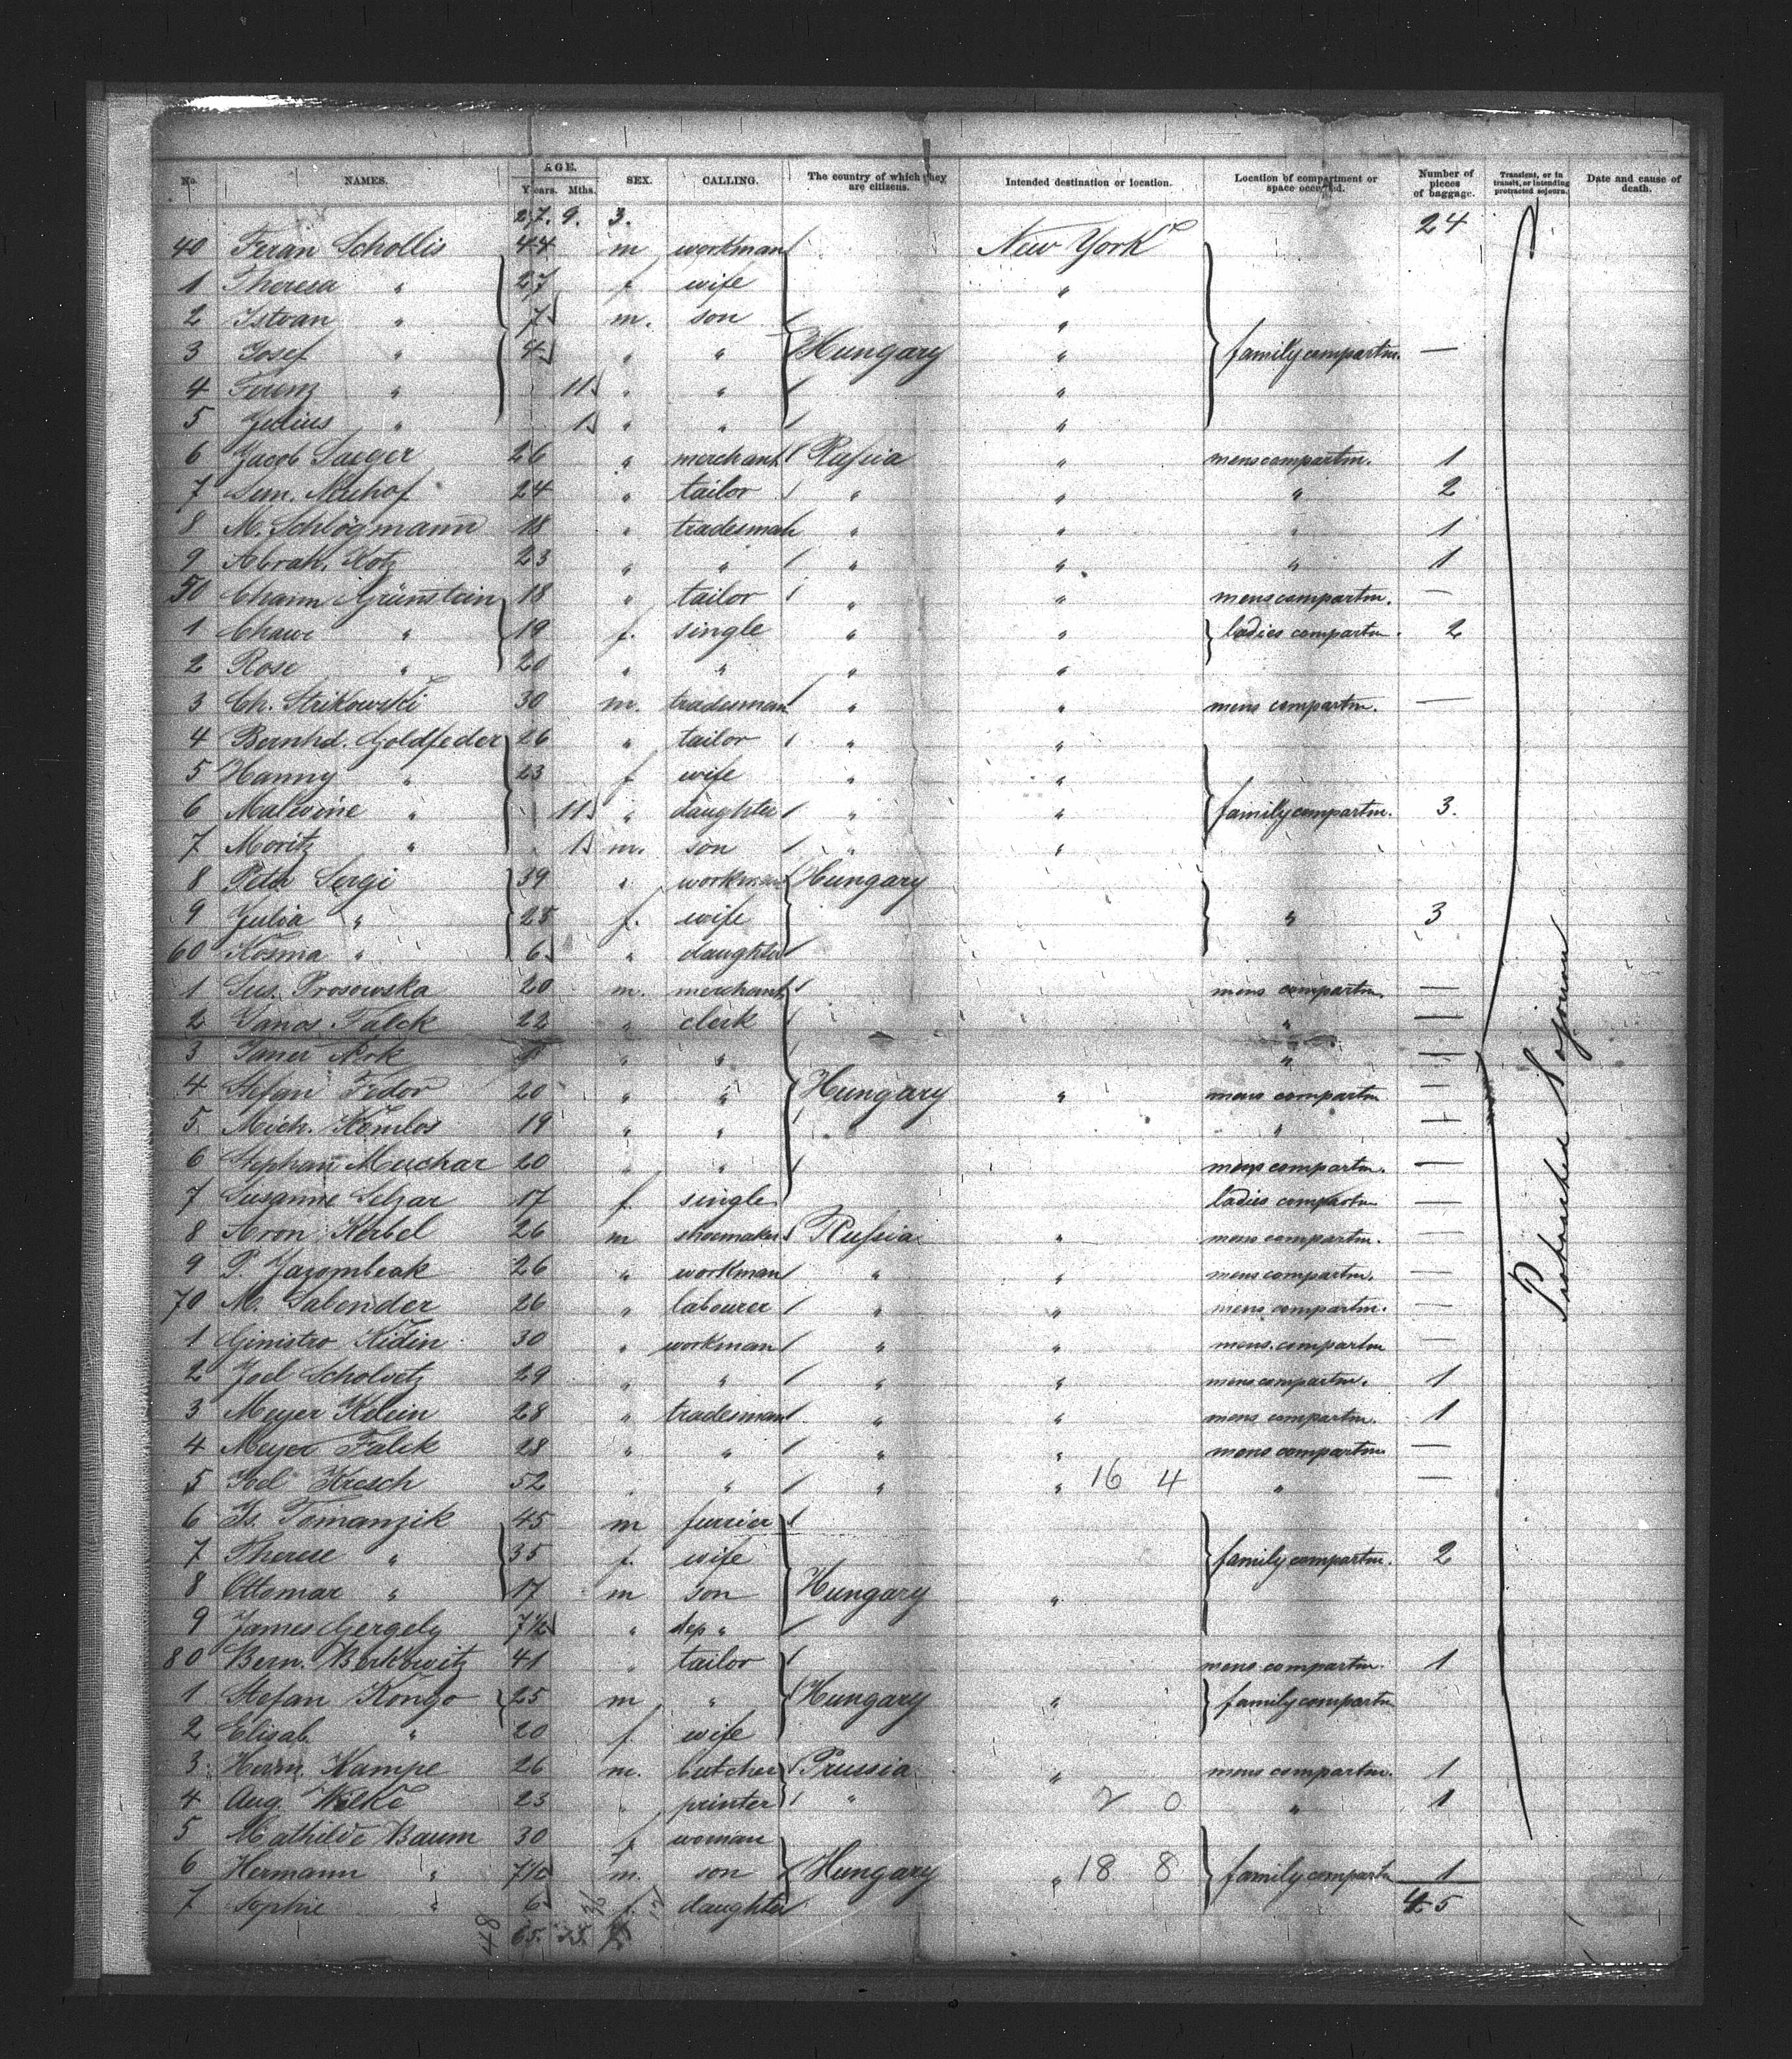 No. NAMES. AGE. Years. Mths. SEX. CALLING. The country of which they are citizens. Intended destination or location. Location of compartment or space occupied. Number of pieces of baggage. Transient, or in transit, or intending protracted sojourn. Date and cause of death.
27. 9. 3. 24
40 Feran Schollis 44 m workman New York
1 Theresa " 27 f. wife "
2 Istvan " 7 m. son "
3 Josef " 4 " " Hungary " family compartm. —
4 Ferenz " 11 " " "
5 Julius " 1 " " "
6 Jacob Saeger 26 " merchant Russia " mens compartm. 1
7 Sim. Neuhof 24 " tailor " " " 2
8 M. Schlögmann 18 " tradesman " " " 1
9 Abrah. Kotz 23 " " " " " 1
50 Chann Grünstein 18 " tailor " " mens compartm. —
1 Chawe " 19 f. single " " ladies compartm. 2
2 Rose " 20 " " " "
3 Ch. Strikowski 30 m. tradesman " " mens compartm. —
4 Bernhd. Goldfeder 26 " tailor " "
5 Hanny " 23 f wife " "
6 Malwine " 11 " daughter " " family compartm. 3.
7 Moritz " 1 m. son " "
8 Peter Sergi 39 " workman Hungary
9 Julia " 25 f. wife " 3
60 Kosma " 6 " daughter
1 Sus. Prosowska 20 m. merchant mens compartm. —
2 Janos Falck 22 " clerk " —
3 Janer Ark " " "
4 Stefan Fedor 20 " " Hungary " mens compartm —
5 Mich. Komlos 19 " " "
6 Stephan Muchar 20 " " mens compartm. —
7 Susanne Selzar 17 f. single ladies compartm —
8 Aron Kerbel 26 m shoemaker Russia " mens compartm. —
9 P. Jazombeak 26 " workman " " mens compartm. —
70 M. Salender 26 " labourer " " mens compartm. —
1 Ginistro Kidin 30 " workman " " mens. compartm —
2 Joel Scholvetz 29 " " " " mens compartm. 1
3 Meyer Klein 28 " tradesman " " mens compartm. 1
4 Meyer Falck 28 " " " " mens compartm —
5 Joel Kresch 52 " " " " 16 4 " —
6 Is. Tomanzik 45 m furrier
7 Therese " 35 f. wife family compartm. 2
8 Ottomar " 17 m son Hungary "
9 James Gergely 7 1/2 " step "
80 Bern. Berkowitz 41 " tailor mens compartm. 1
1 Stefan Kongo 25 m " Hungary " family compartm
2 Elisab. " 20 f. wife
3 Herm. Kampe 26 m. butcher Prussia " mens compartm. 1
4 Aug. Wilke 23 " printer " 2 0 " 1
5 Mathilde Baum 30 f woman
6 Hermann " 7 1/2 m. son Hungary " 18 8 family compartm 1
7 Sophie " 6 f. daughter 45
65. 33.
Protracted Sojourn